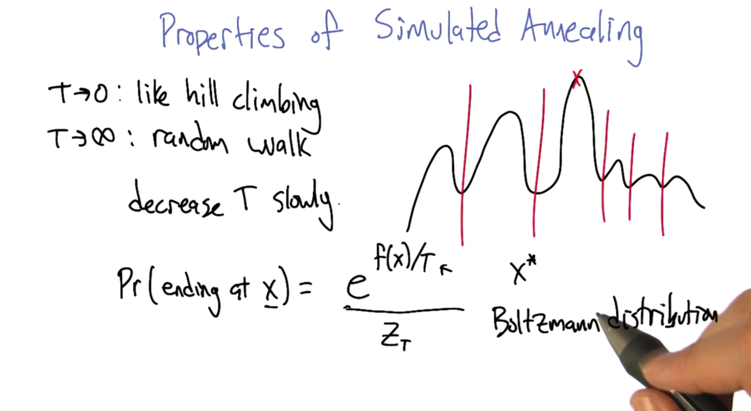 Properties of Simulated Annealing
T→0: like hill climbing
T→∞: random walk
decrease T slowly.
x
Pr(ending at x) = e^f(x)/T / Z_T
x*
Boltzmann distribution